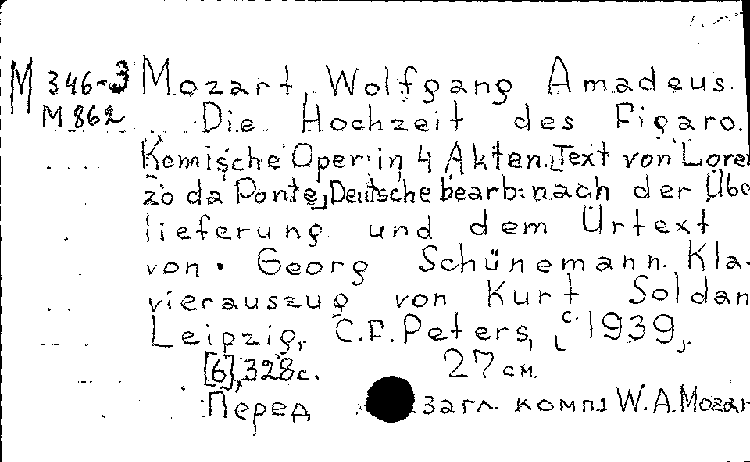 М 346-3 Mozart, Wolfgang Amadeus.
М 862 Die Hochzeit des Figaro.
Komische Oper in 4 Akten. Text von Loren
zo da Ponte, Deutsche bearb. nach der Übe
lieferung und dem Urtext
von Georg Schünemann. Kla-
vierauszug von Kurt Soldan
Leipzig, C.F. Peters, [c 1939].
[6], 328 с. 27 см.
Перед загл. комп: W.A. Mozar